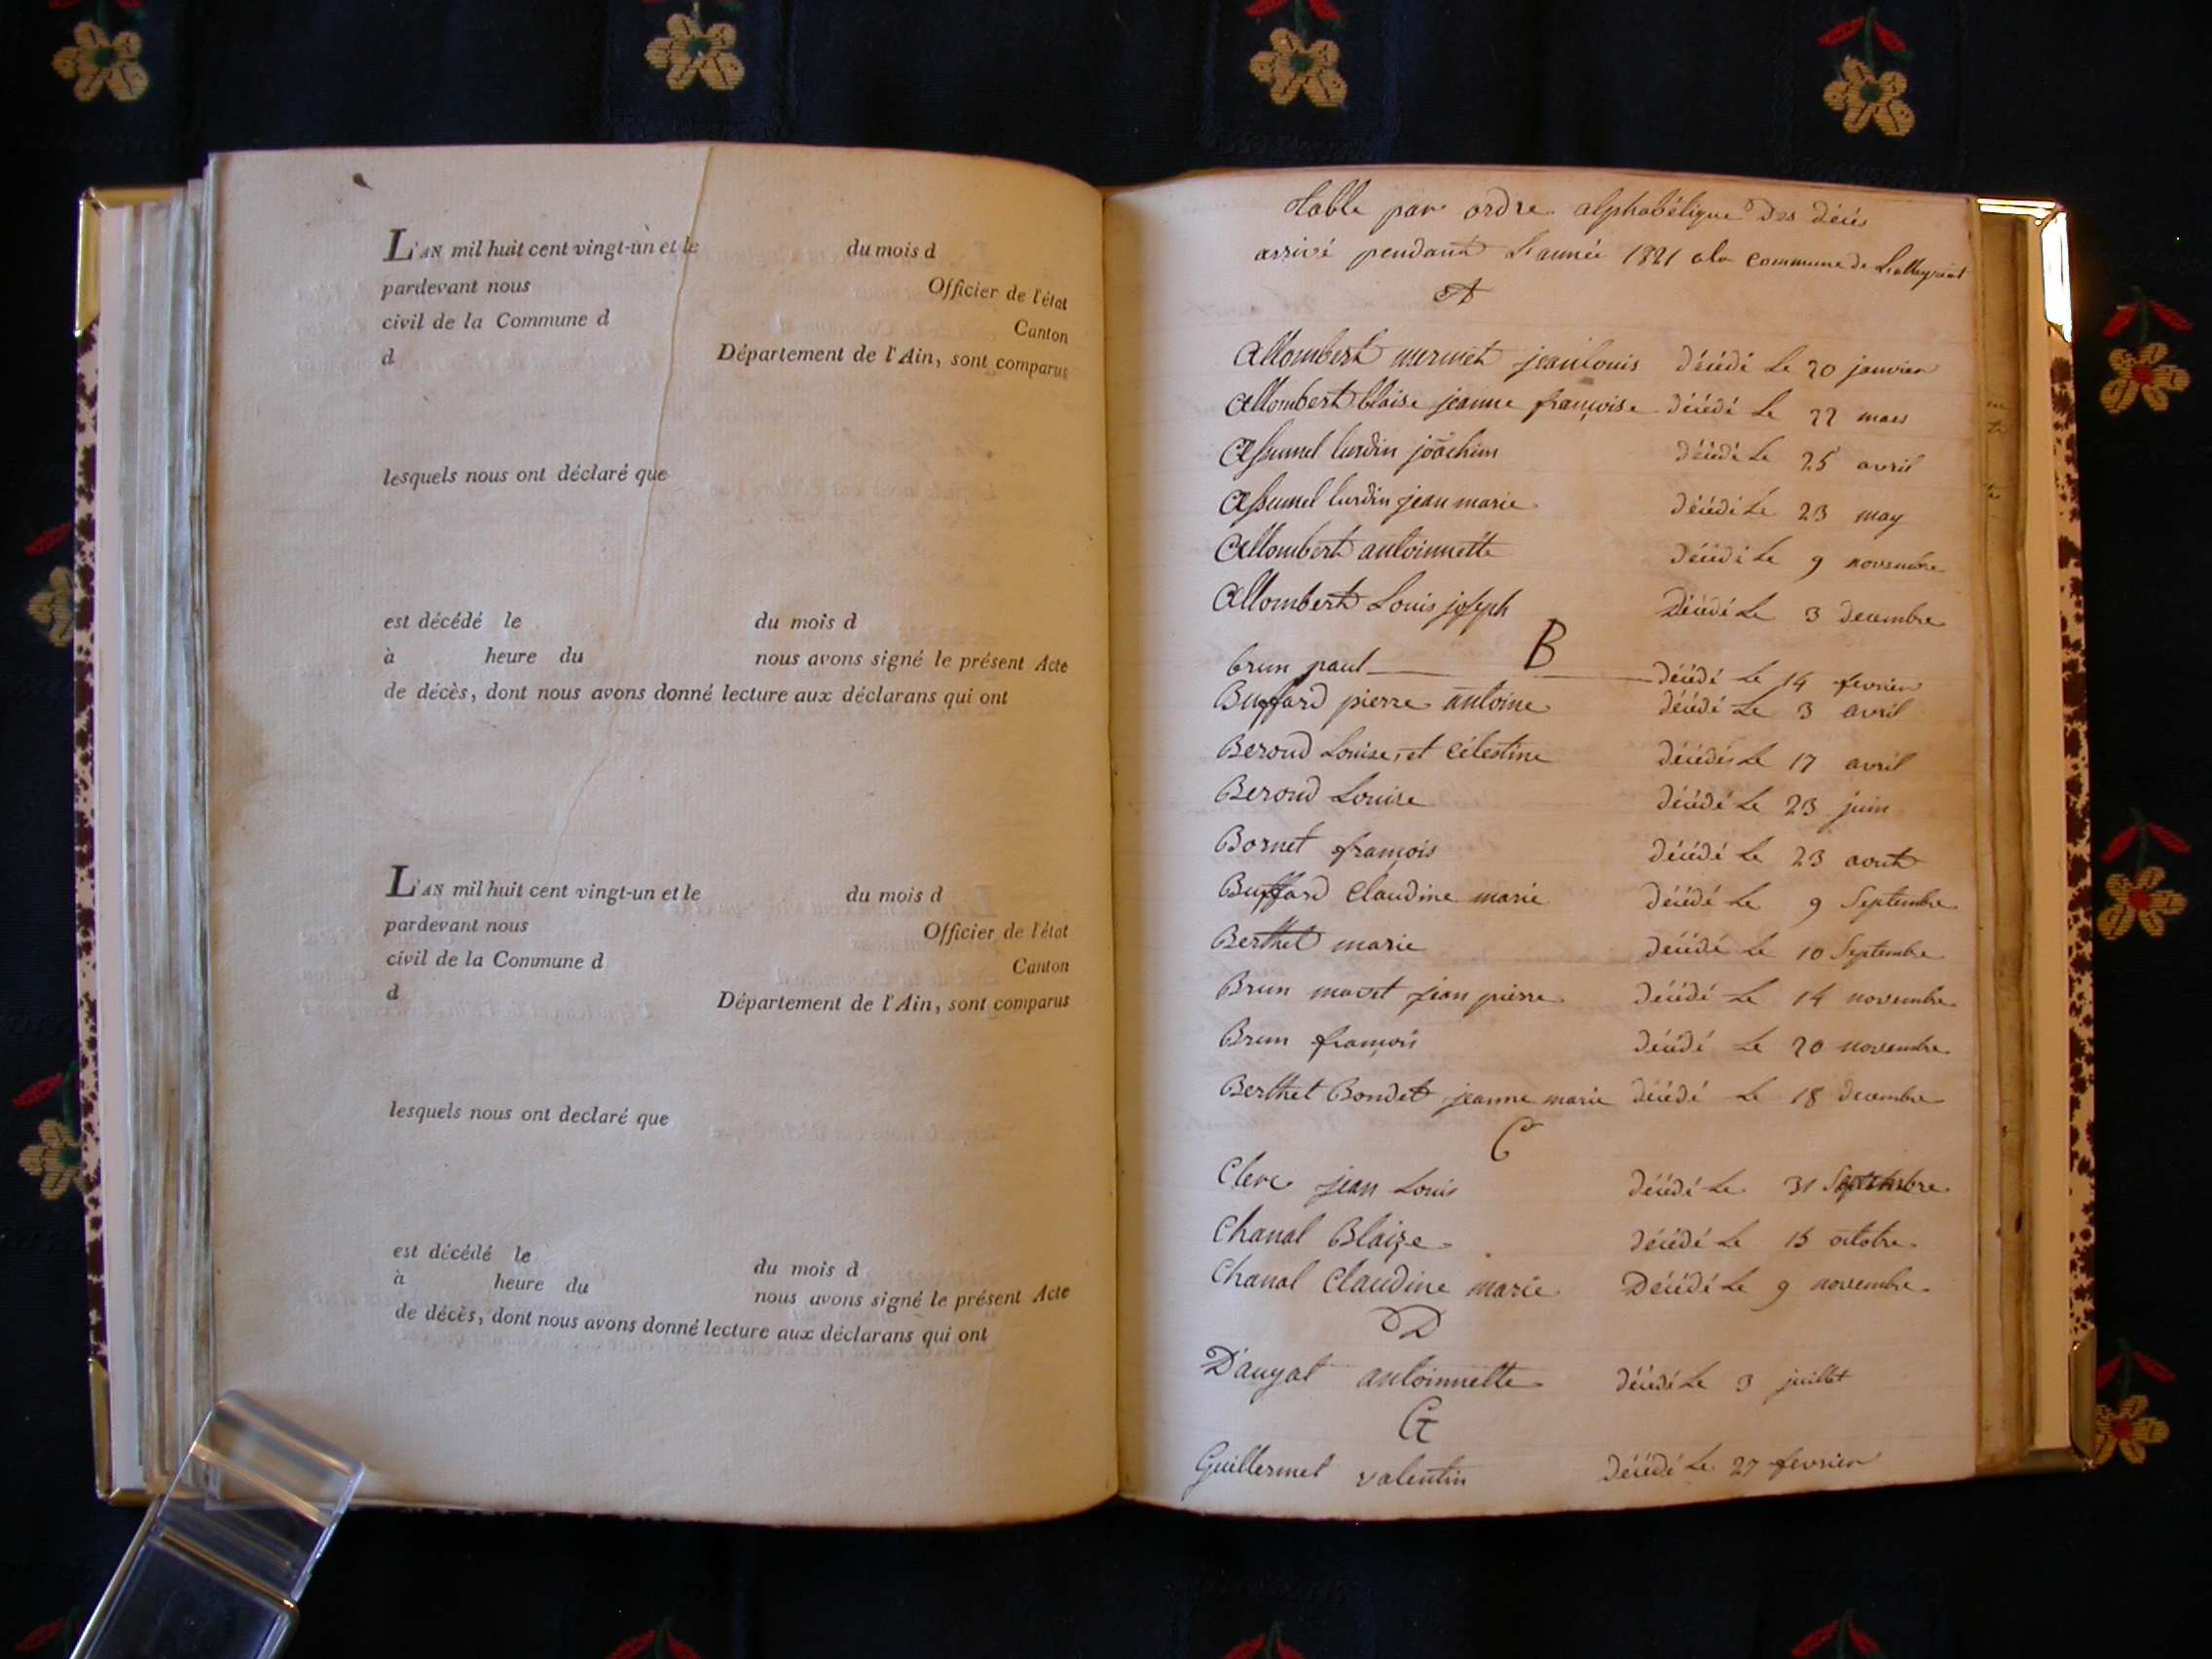 L'AN mil huit cent vingt-un et le du mois d
pardevant nous Officier de l'état
civil de la Commune d Canton
d Département de l'Ain, sont comparus
lesquels nous ont déclaré que
est décédé le du mois d
à heure du nous avons signé le présent Acte
de décès, dont nous avons donné lecture aux déclarans qui ont
L'AN mil huit cent vingt-un et le du mois d
pardevant nous Officier de l'état
civil de la Commune d Canton
d Département de l'Ain, sont comparus
lesquels nous ont declaré que
est décédé le du mois d
à heure du nous avons signé le présent Acte
de décès, dont nous avons donné lecture aux déclarans qui ont
table par ordre alphabétique Des décés
arrivé pendant L'année 1821 a la commune de
A
Allombert mermet jean louis décédé Le 20 janvier
Allombert blaise jeanne françoise décédé Le 22 mars
Assumel lurdin joachim décédé Le 25 avril
Assumel lurdin jean marie décédé Le 23 may
Allombert antoinnette décédé Le 9 novembre
Allombert Louis joseph Décédé Le 3 decembre
B
brun paul décédé Le 14 fevrier
Buffard pierre antoine décédé Le 3 avril
Beroud Louise, et Célestine décédés Le 17 avril
Beroud Louise décédé Le 23 juin
Bornet françois décédé Le 23 aout
Buffard Claudine marie décédé Le 9 Septembre
Berthet marie décédé Le 10 Septembre
Brun jean pierre décédé Le 14 novembre
Brun françois décédé Le 20 novembre
Berthet Bondet jeanne marie décédé Le 18 decembre
C
Clerc jean Louis décédé Le 31 Septembre
Chanal Blaize décédé Le 15 octobre
Chanal Claudine marie Décédé Le 9 novembre
D
D'augat antoinnette décédé Le 3 juillet
G
Guillermet valentin décédé Le 27 fevrier